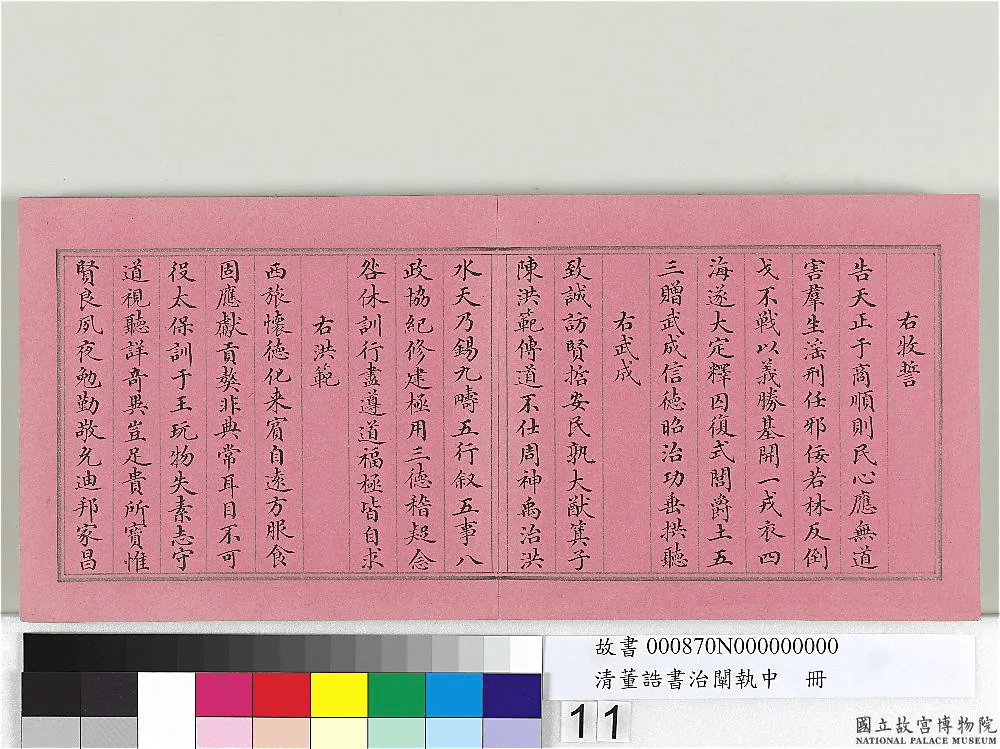 右牧誓
告天正于商順則民心應無道
害羣生淫刑任邪佞若林反倒
戈不戰以義勝基開一戎衣四
海遂大定釋囚復式閭爵土五
三贈武成信德昭治功垂拱聽
右武成
致誠訪賢哲安民孰大猷箕子
陳洪範傳道不仕周神禹治洪
水天乃錫九疇五行叙五事八
政協紀修建極用三德稽疑念
咎休訓行盡遵道福極皆自求
右洪範
西旅懷德化来賓自遠方服食
固應獻貢獒非典常耳目不可
役太保訓于王玩物失素志守
道視聽詳奇異豈足貴所寶惟
賢良夙夜勉勤敬允迪邦家昌
故書 000870N000000000
清董誥書治闡執中 冊
11
國立故宮博物院
NATIONAL PALACE MUSEUM